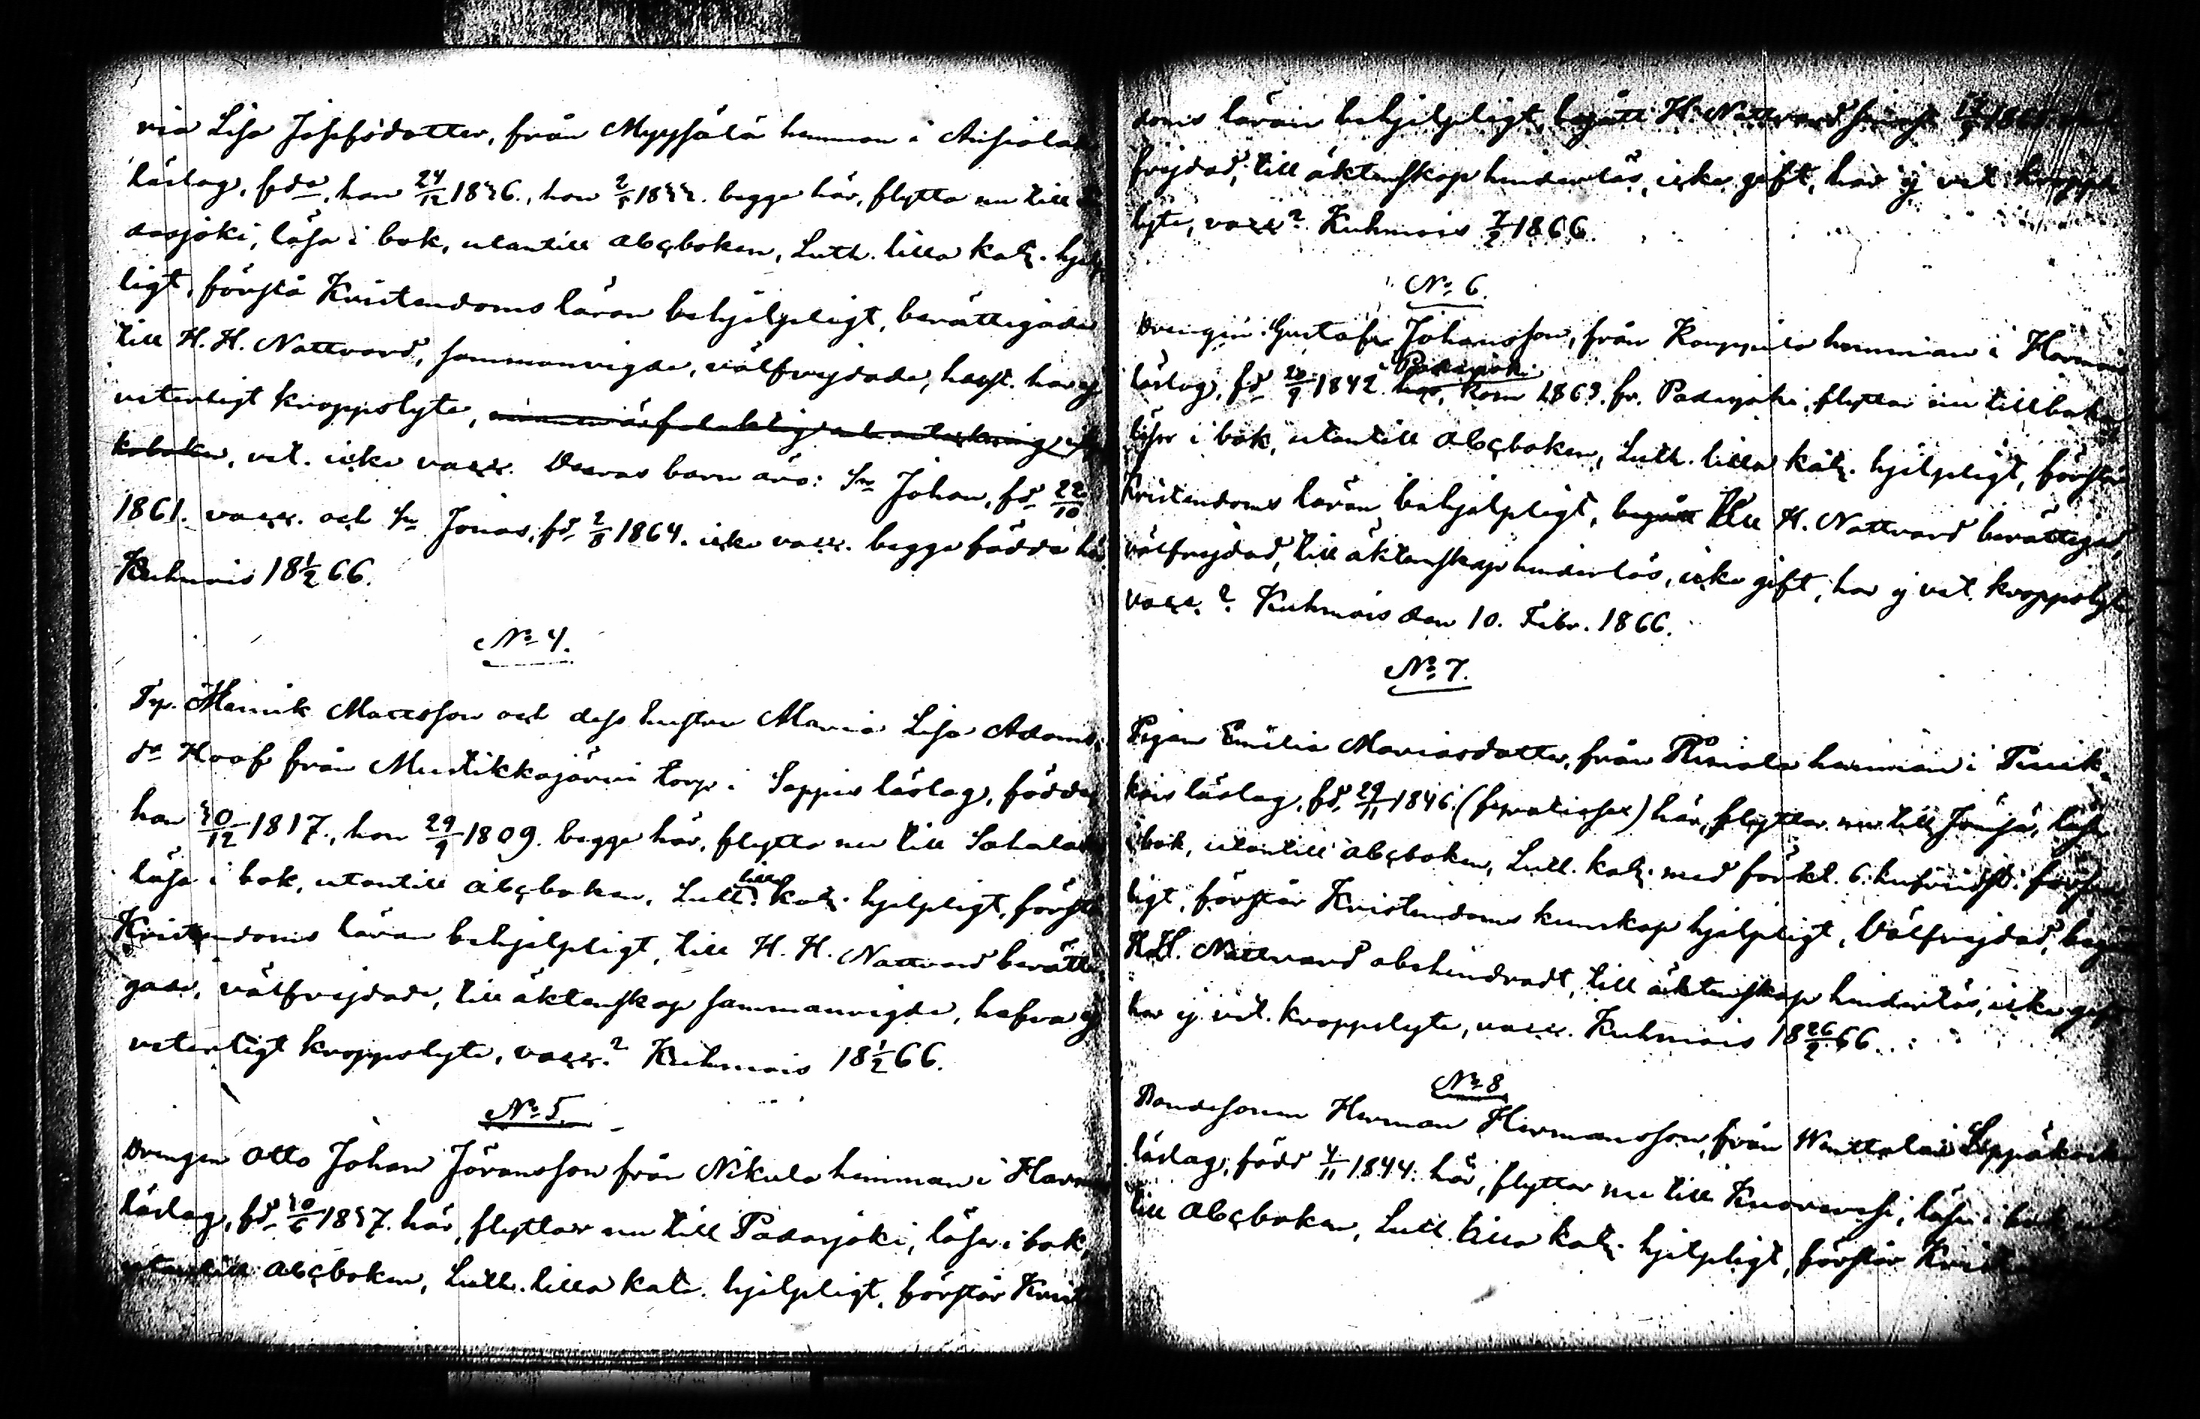 ria Lisa Josefsdotter, från Myysälä hemman i
läslag, fdd, han 24/12 1836., hon 2/5 1833. begge här, flytta nu till
dasjoki, läsa i bok, utantill abcboken, Luth. lilla kat. hjelp
ligt, förstå Kristendoms läran behjelpligt, berättigade
till H. H. Nattvard, sammanvigde, välfrejdade, haf. ej
veterligt kroppslyte,
vet. icke vacc. Deras barn äro: Sn Johan, fd 22/10
1861. vacc. och Sn Jonas, fd 2/8 1864. icke vacc. begge födde här
Kuhmois 18 1/2 66.
No 4.
Tp. Henrik Mattsson och dess hustru Maria Lisa Adams
dr Hoof från Mustikkajärvi torp i Seppis läslag, födda
han 30/12 1817., hon 29/9 1809. begge här, flytta nu till Sahalaks
läsa i bok, utantill abcboken, Luth. lilla kat. hjelpligt, förstå
Kristendoms läran behjelpligt, till H. H. Nattvard berätti
gade, välfrejdade, till äktenskap sammanvigde, hafva ej
veterligt kroppslyte, vacc.? Kuhmois 18 1/2 66.
No 5.
Drengen Otto Johan Göransson från Nikula hemman i Harmois
läslag, fd 30/6 1837. här, flyttar nu till Padasjoki, läser i bok,
utantill abcboken, Luth. lilla kate. hjelpligt, förstår Krist
doms läran behjelpligt, begått H. Nattvard 1865
frejdad, till äktenskap hinderlös, icke gift, har ej vet. kropps
lyte, vacc? Kuhmois 7/2 1866.
No 6.
Drengen Gustaf Johansson, från Kauppila hemman i Harmois
läslag, fd 20/9 1842 Padasjoki. här, kom 1863. fr. Padasjoki, flyttar nu tillbaka
läser i bok, utantill abcboken, Luth. lilla kat. hjelpligt, förstår
Kristendoms läran behjelpligt, begått till H. Nattvard berättigad,
välfrejdad, till äktenskap hinderlös, icke gift, har ej vet. kroppslyte
vacc.? Kuhmois den 10. Febr. 1866.
No 7.
Pigan Emilia Mariasdotter, från hemman i
kois läslag, fd. 29/11 1846. här, flyttar nu till Jämsä, läser
i bok, utantill abcboken, Luth. kat. med förkl. 6. hufvudst. försva
ligt, förstår Kristendoms kunskap hjelpligt, Välfrejdad, begår
H. H. Nattvard obehindradt, till äktenskap hinderlös, icke gift
har ej vet. kroppslyte, vacc. Kuhmois 18 26/2 66.
No 8
Bondesonen Herman Hermansson, från
läslag, född 4/11 1844. här, flyttar nu till Kuorevesi, läser i bok,
till abcboken, Luth. lilla kat. hjelpligt, förstår Krist